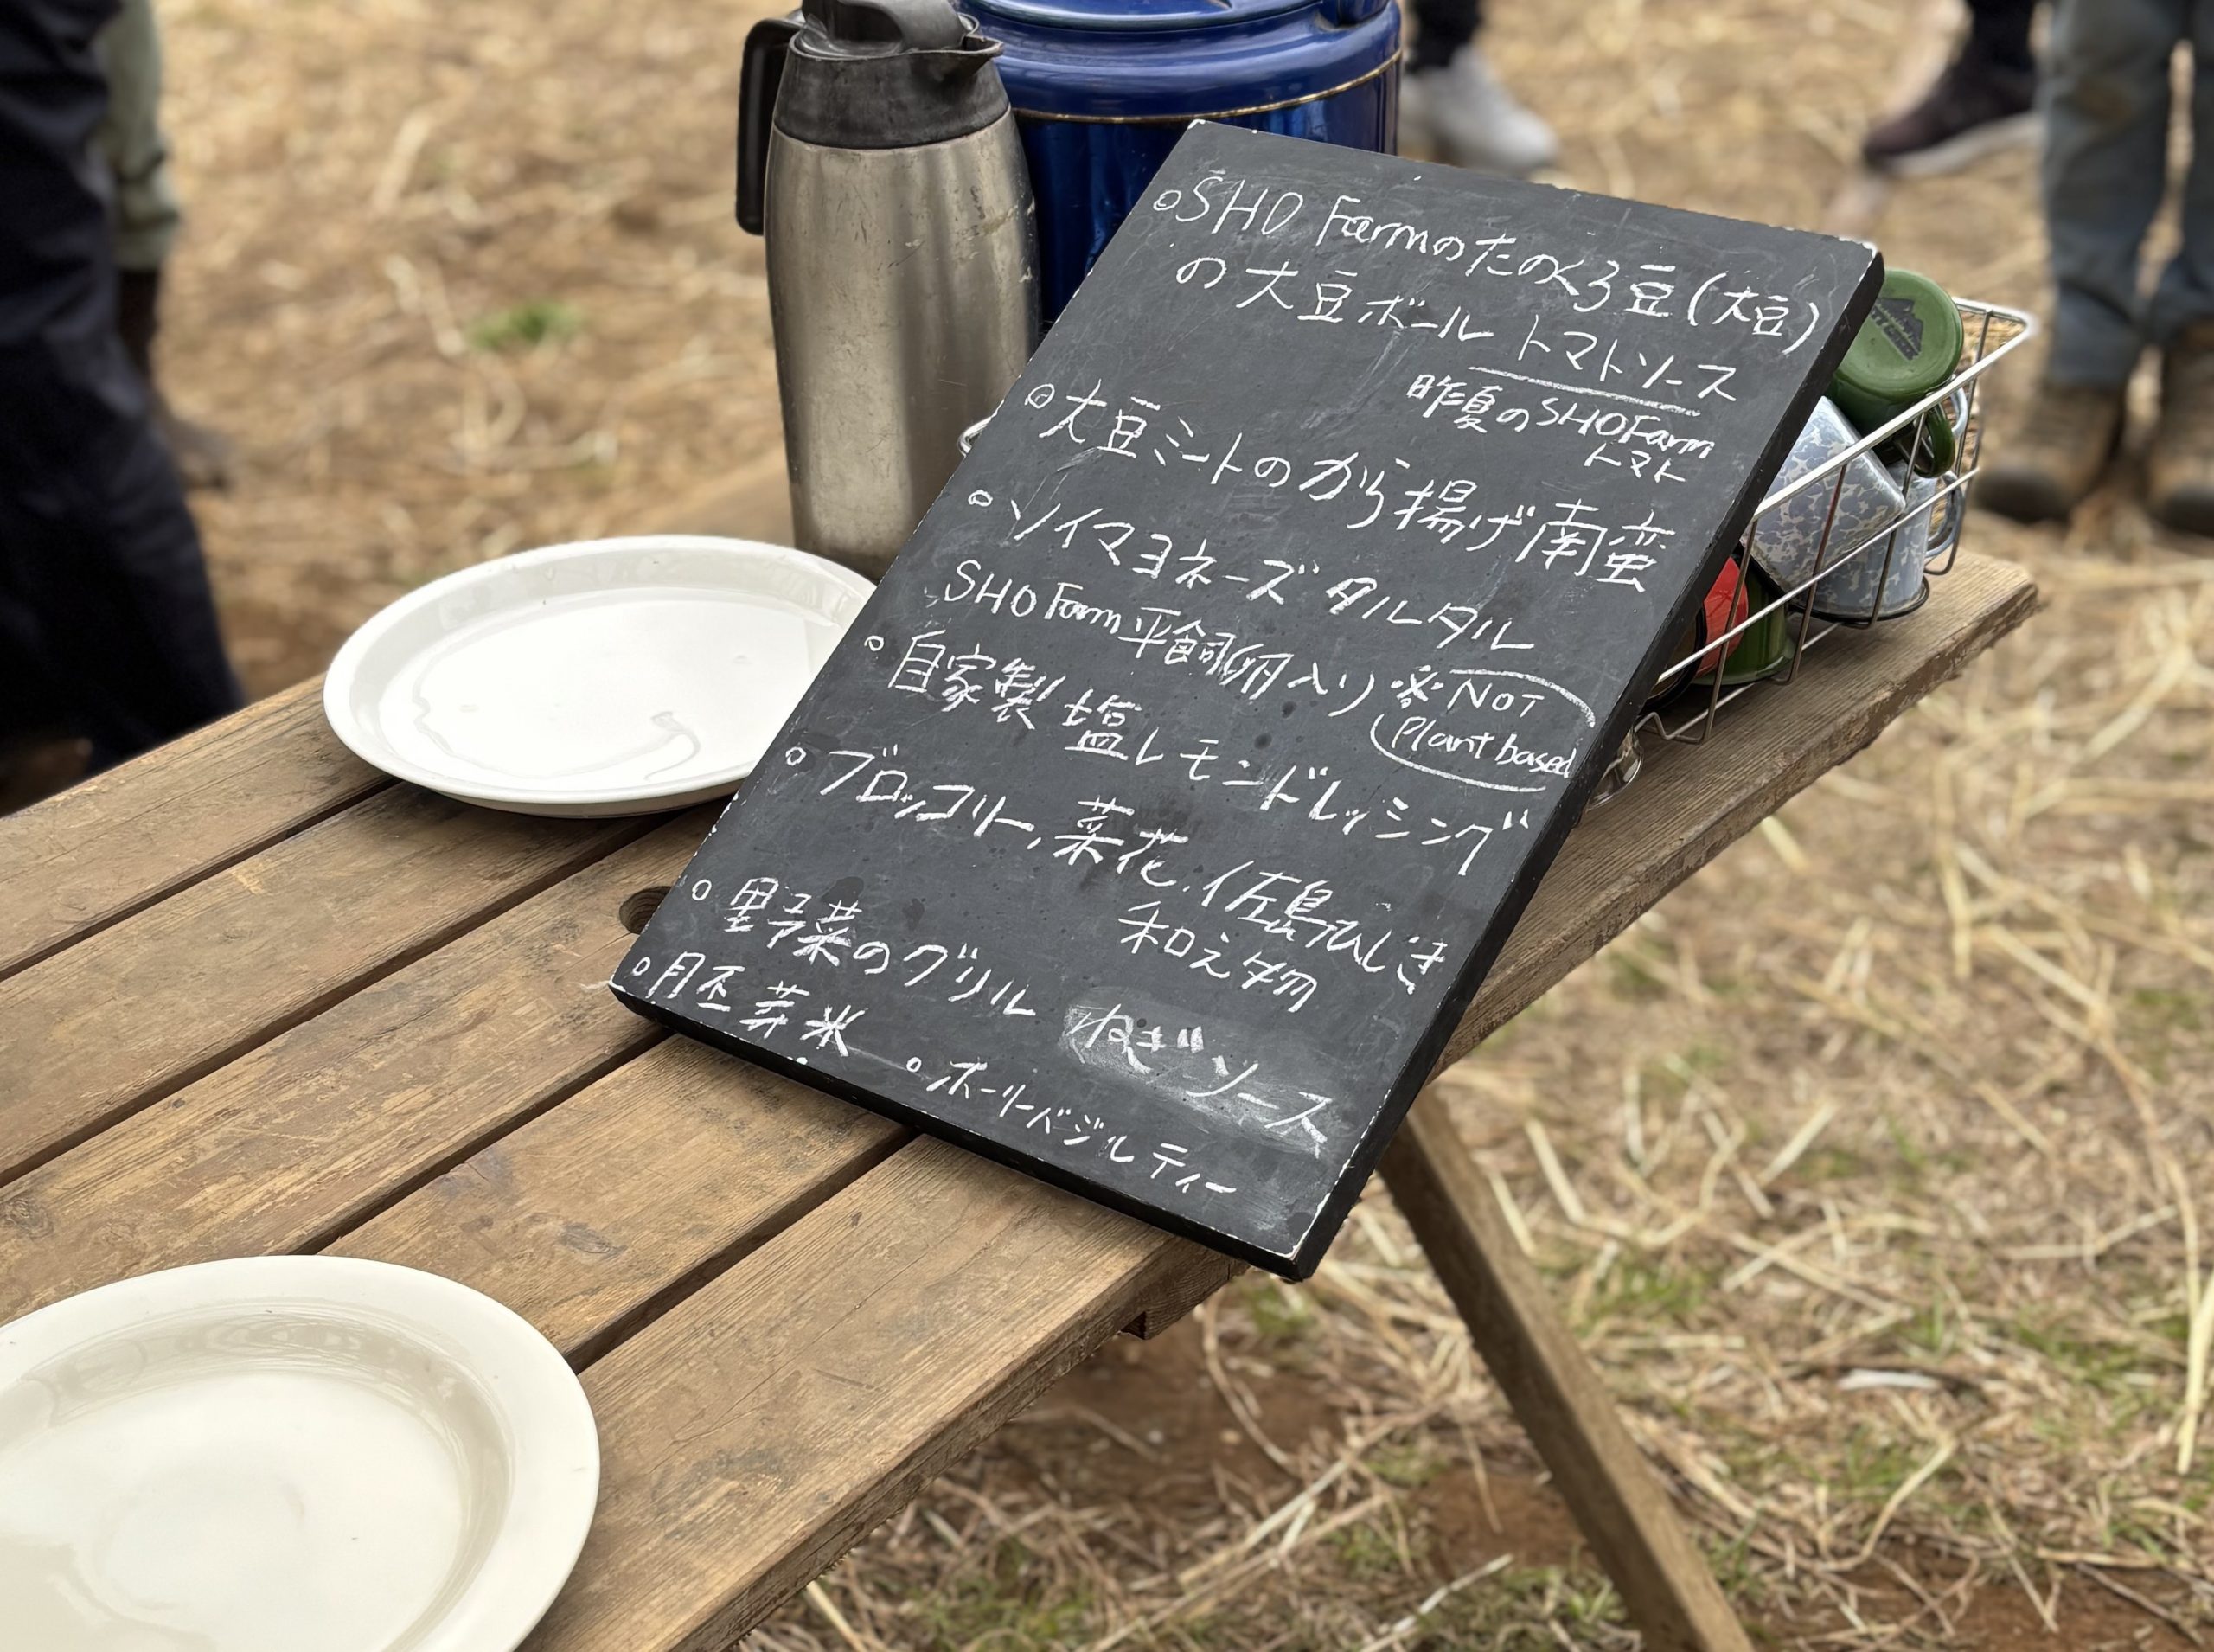 ◦SHO Farmのたのくろ豆(大豆)
の大豆ボール トマトソース
昨夏のSHO Farm
トマト
◦大豆ミートのから揚げ南蛮
◦ソイマヨネーズタルタル
SHO Farm 平飼卵入り ※NOT
Plant based
◦自家製 塩レモンドレッシング
◦ブロッコリー,菜花,佐島ひじき
和え物
◦野菜のグリル ねぎソース
◦胚芽米
◦ホーリーバジルティー